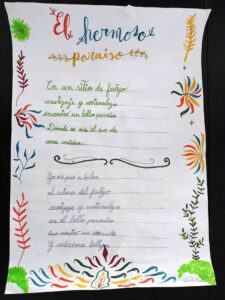 El hermoso
paraíso
En un sitio de festejo
mestizaje y naturaleza
encontré un bello paraíso
Donde se vio el uso de
una música.
Yo me puse a bailar
al ritmo del festejo
mestizaje y naturaleza
en el bello paraíso
que
y máxima belleza